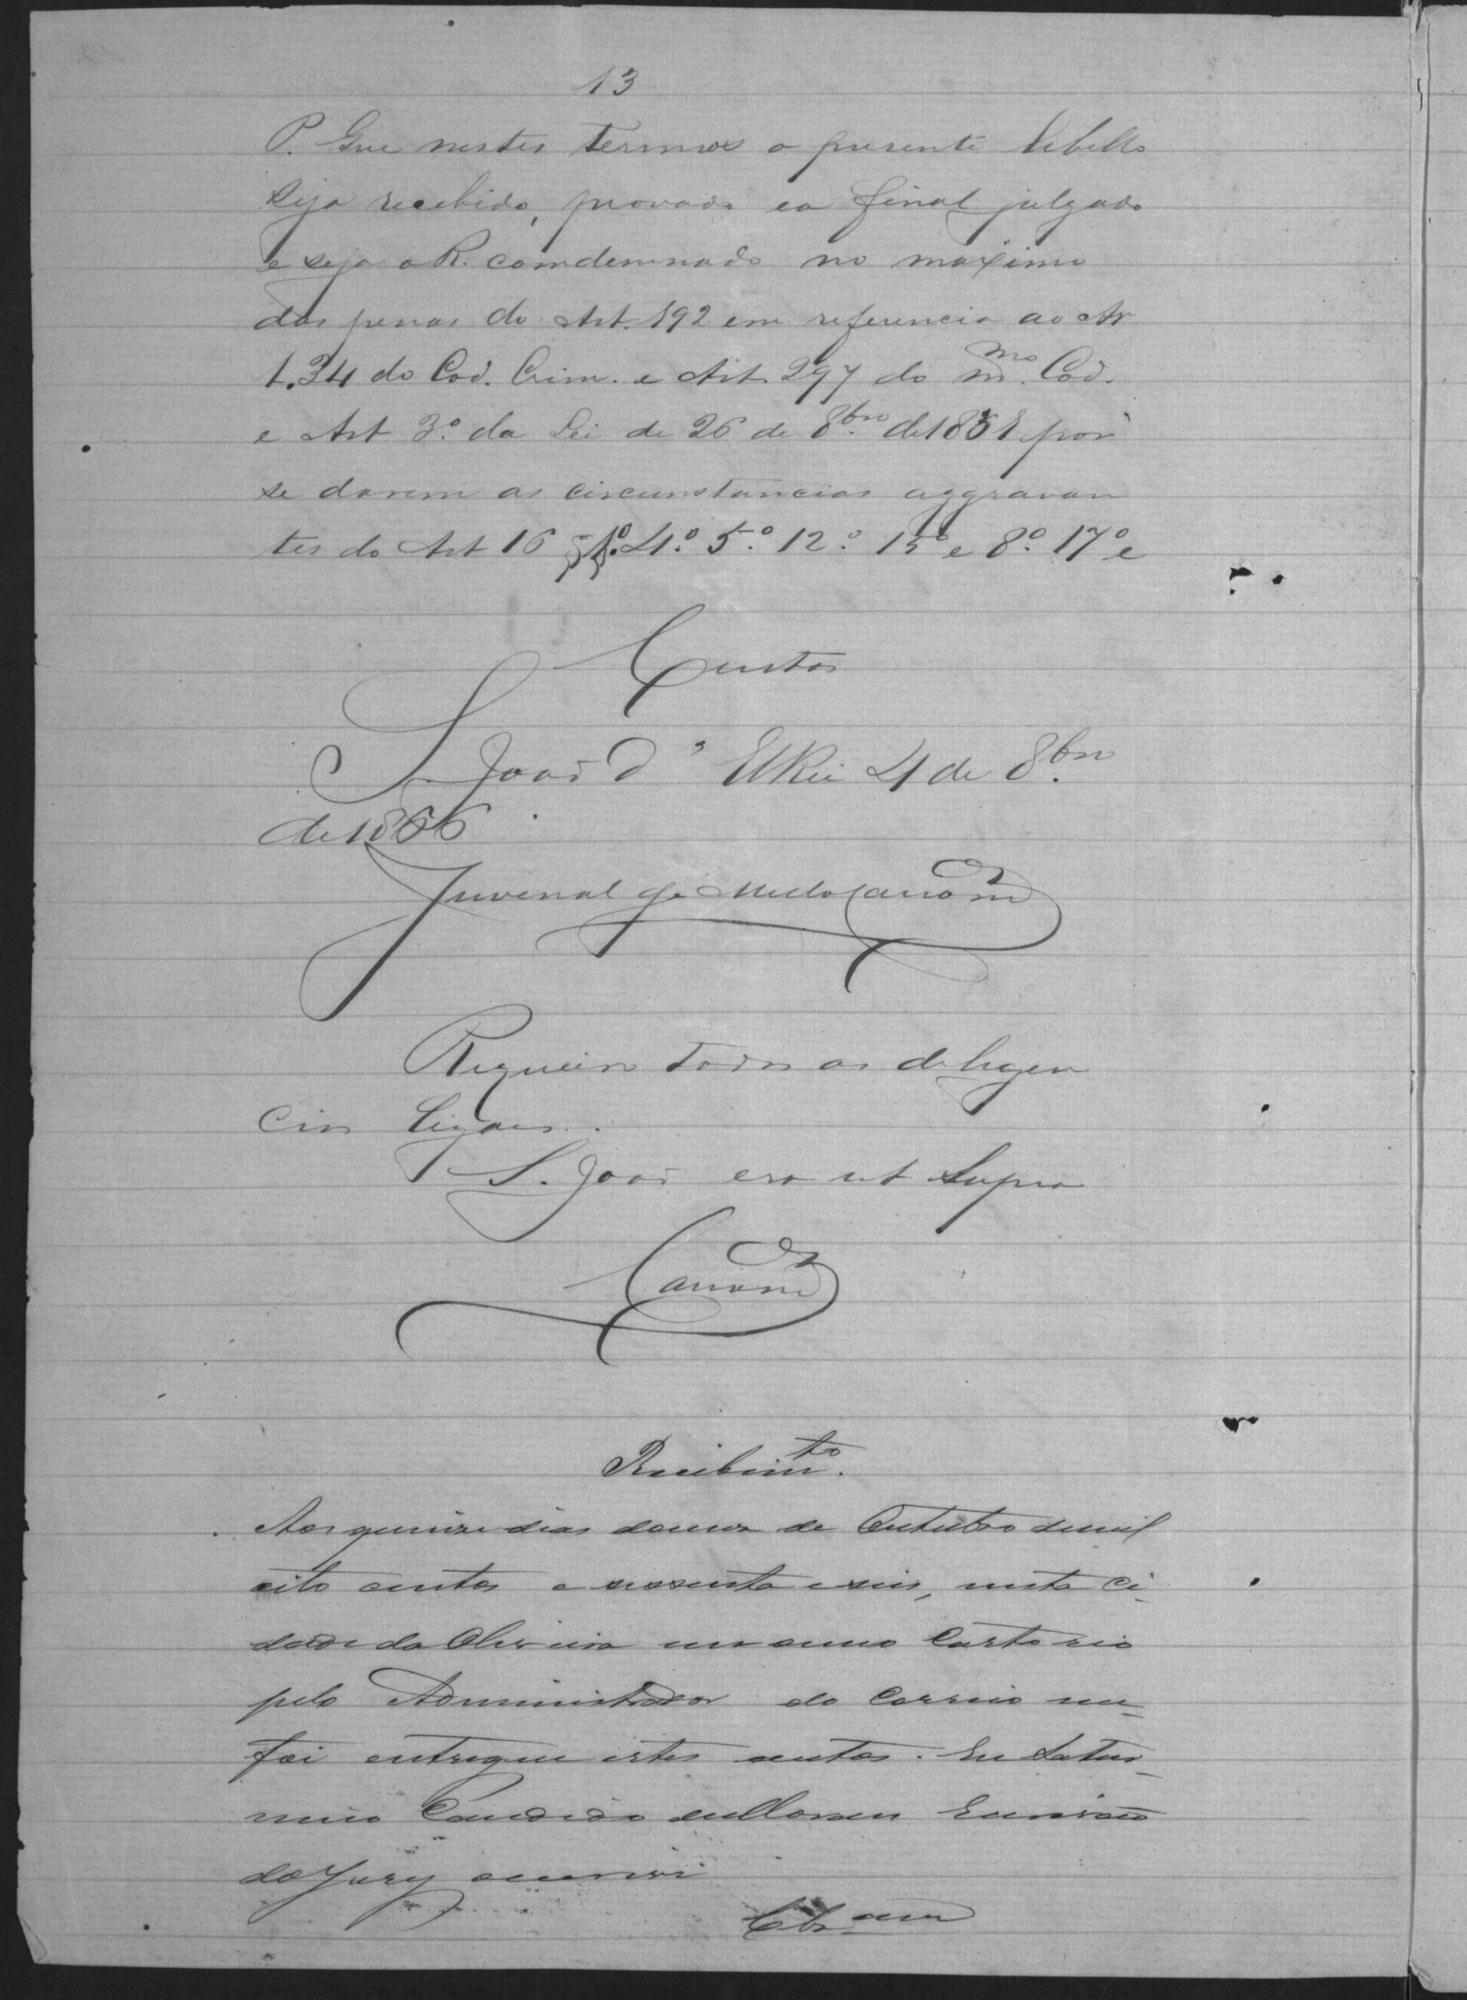 13
P. Que nestes termos o presente libello
seja recebido, provado e a final julgado
e seja o R. comdemnado no maximo
das penas do Art. 192 em referencia ao Ar
t. 34 do Cod. Crim. e Art. 297 do m.mo Cod.
e Art 3.º da Lei de 26 de 8.bro de 1831 por
se darem as circunstancias aggravan
tes do Art 16 §§ 1.º 4.º 5.º 12.º 15º e 8.º 17º e
Custas
S. João d'ElRei 4 de 8.bro
de 1866
Juvenal de Mello Carramº
Requeiro todas as deligen
cias legaes.
S. João era ut supra
Carramº
Recebim.to
Aos quinze dias do mez de Outubro de mil
oito centos e sessenta e seis, nesta Ci-
dade da Oliveira em o meu Cartorio
pelo Administrador do Correio me
foi entregue estes autos. Eu Satur-
nino Candido Escrivão
do Jury o escrevi